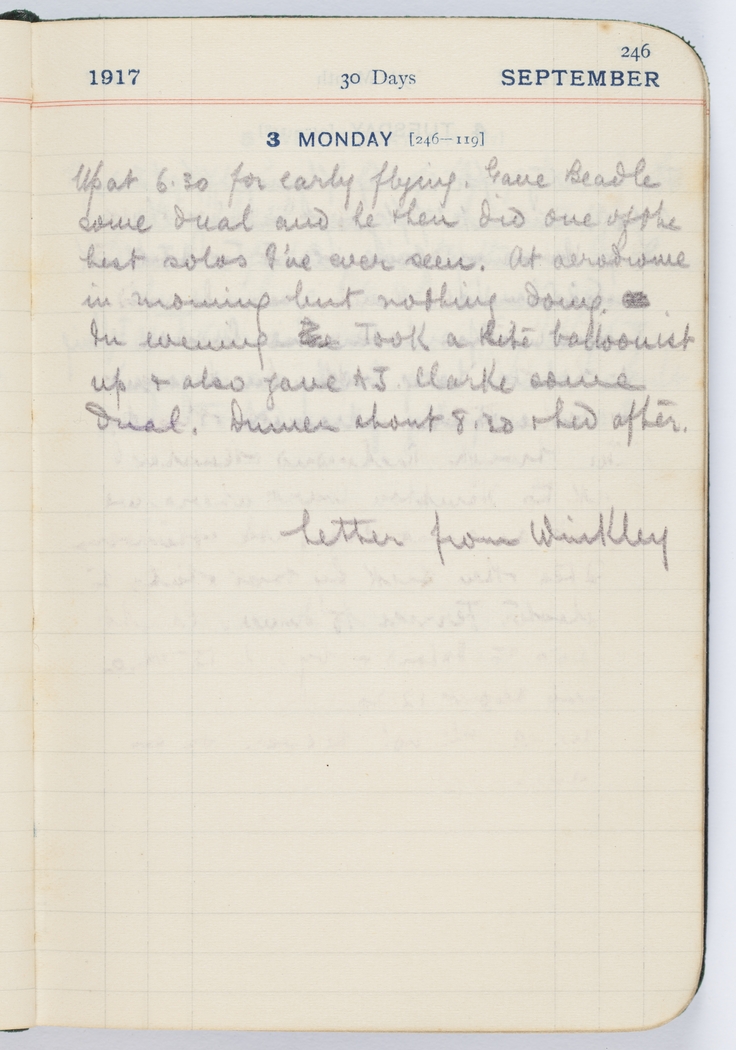 246
1917 30 Days SEPTEMBER
3 MONDAY [246—119]
Up at 6.30 for early flying. Gave Beadle
some dual and he then did one of the
best solos I've ever seen. At aerodrome
in morning but nothing doing.
In evening Took a kite balloonist
up & also gave AJ. Clarke some
dual. Dinner about 8.30 & bed after.
Letter from Winkley